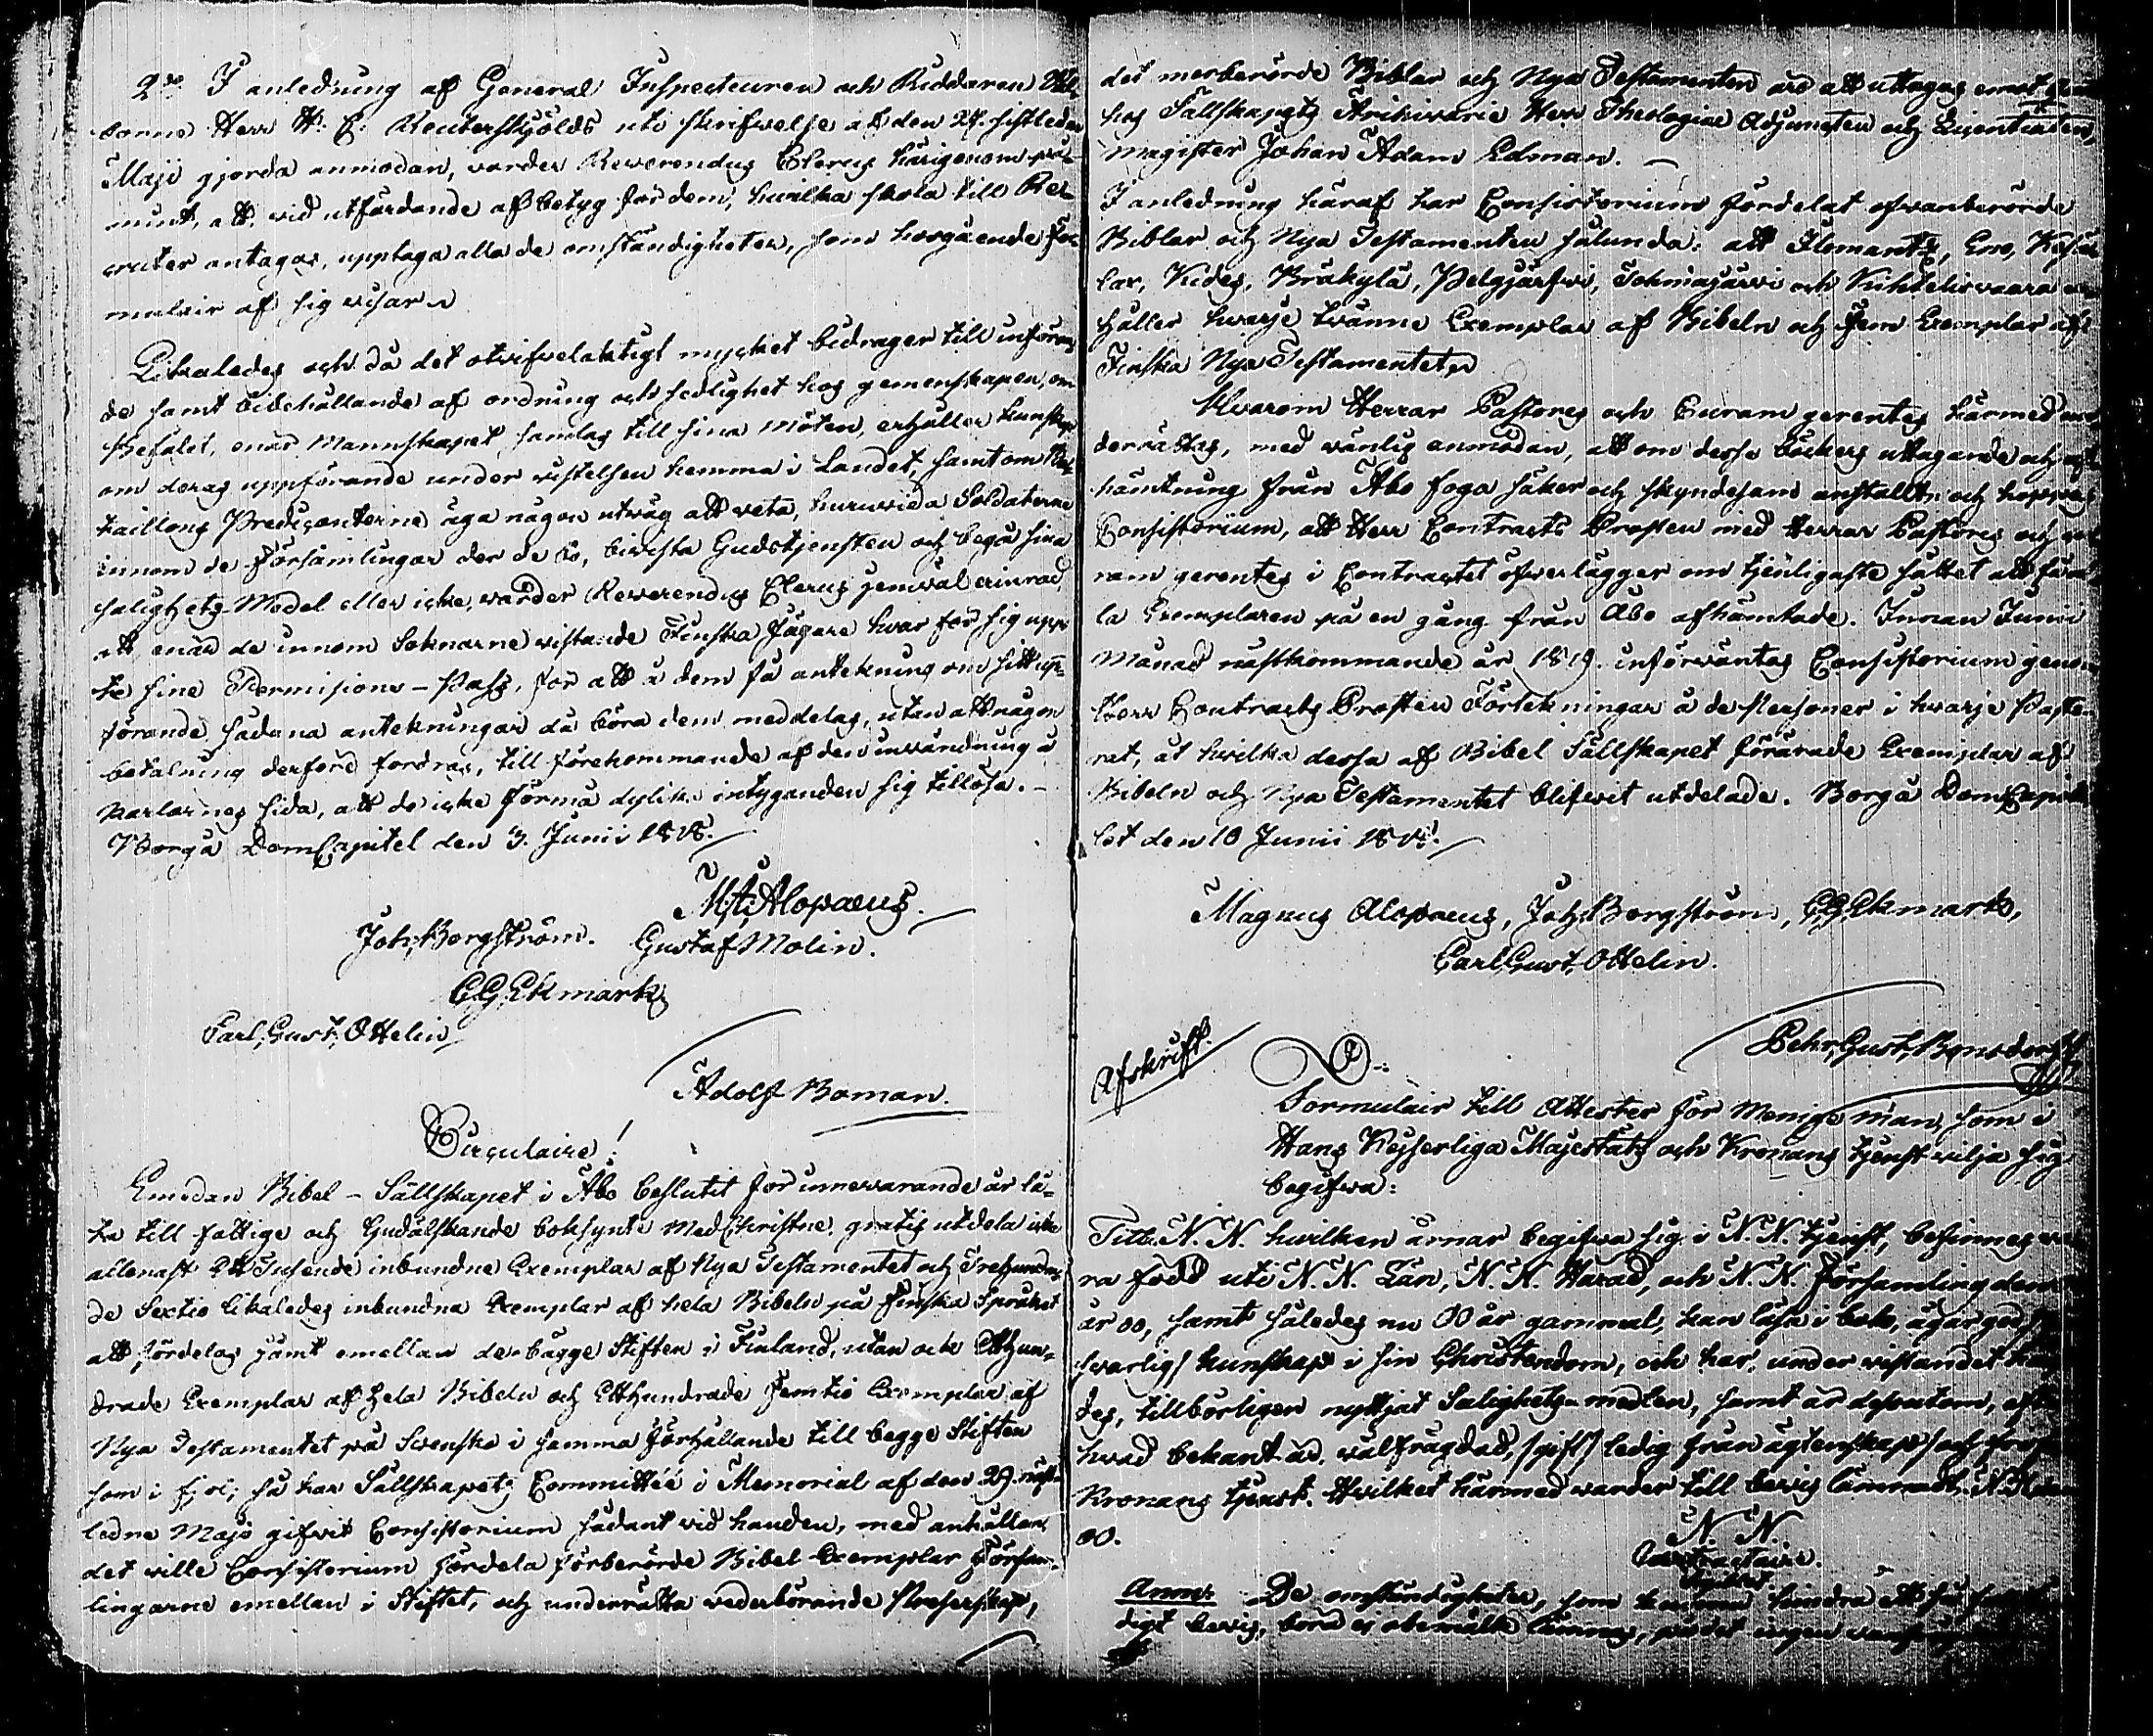 2do I anledning af General Inspecteuren och Riddaren Wäl-
borne Herr H. E. Reuterskjölds uti skrifwelse af den 27. sistledne
Maji gjorda anmodan, warder Reverendus Clerus härigenom på-
mint, att, wid utfärdande af betyg för dem, hwilka skola till Rec-
ruter antagas, upptaga alla de omständigheter, som hosgående For-
mulair af sig wisar.
Likaledes och då det otwifwelaktigt mycket bidrager till införan-
de samt bibehållande af ordning och sedlighet hos gemenskapen, om
Befälet, enär Manskapet samlas till sina Möten, erhåller kunskap
om deras uppförande under wistelsen hemma i Landet, samt om Ba-
taillons Predicanterne äga någon utwäg att weta, huruwida Soldaterne
innom de församlingar der de bo, biwista Gudstjensten och begå sina
salighets Medel eller icke, warder Reverendus Clerus jemwäl erinrad,
att enär de innom Soknarne wistande Finska Jägare hwar för sig uppte
te sine Permissions-Pass, för att å dem få antekning om sitt upp-
förande, sådana antekningar då böra dem meddelas, utan att någon
betalning derföre fordras, till förekommande af den inwändning å
Karlarnes sida, att de icke förmå dylika intyganden sig tillösa. -
Borgå DomCapitel den 3. Junii 1818.
M: Alopaeus.
Joh: Borgström. Gustaf Molin.
C. G. Ekmark,
Carl Gust: Ottelin,
Adolf Boman.
Circulaire!
Emedan Bibel-Sällskapet i Åbo beslutit för innewarande år lå-
ta till fattige och Gudälskande boksynte MedChristne, gratis utdela icke
allenast Ett Tusende inbundne Exemplar af Nya Testamentet och Trehundra-
de Sextio likaledes inbundna Exemplar af hela Bibeln på Finska Språket
att fördelas jämt emellan de bägge Stiften i Finland, utan ock Etthun-
drade Exemplar af hela Bibeln och Etthundrade femtio Exemplar af
Nya Testamentet på Swenska i samma förhållande till begge Stiften
som i fjol; så har Sällskapets Committée i Memorial af den 29. näst-
ledne Maji gifwit Consistorium sådant wid handen, med anhållan
det wille Consistorium fördela förberörde Bibel Exemplar Försam-
lingarne emellan i Stiftet, och underrätta wederbörande Presterskap,
det merberörde Biblar och Nya Testamenten äro att uttagas emot
hos Sällskapets Arkivarie Herr Theologiae Adjuncten och Licentiaten,
Magister Johan Adam Edman. -
I anledning häraf har Consistorium fördelat ofwanberörde
Biblar och Nya Testamenten sålunda: att Ilomants, Eno,
lax, Kides, Bräkylä, Pelgjärfwi, Tohmajärwi och Kihtelisvaara
håller hwarje twänne Exemplar af Bibeln och fem Exemplar af
Finska Nya Testamentet.
Hwarom Herrar Pastores och Curam gerentes härmed un-
derrättas, med wänlig anmodan, att om desse böckers uttagande och af-
hämtning från Åbo foga säker och skyndesam anstallt; och hoppas
Consistorium, att Herr Contracts Prosten med Herrar Pastores och cu-
ram gerentes i Contractet öfwerlägger om tjenligaste sättet att få al-
la Exemplaren på en gång från Åbo afhämtade. Innan Junii
Månad nästkommande år 1819. införwäntas Consistorium genom
Herr Contracts Prosten Förtekningar å de Personer i hwarje Pasto-
rat, åt hwilka dessa af Bibel Sällskapet förärade Exemplar af
Bibeln och Nya Testamentet blifwit utdelade. Borgå DomCapit-
let den 10 Junii 1818.
Magnus Alopaeus, Joh: Borgström, C. G. Ekmark,
Carl Gust: Ottelin.
Pehr Gust: Bonsdorff
Afskrift. A.
Formulair till Attester för Menige man, som i
Hans Kejserliga Majestäts och Kronans tjenst wilja sig
begifwa:
Titt. N. N. hwilken ärnar begifwa sig i N. N. tjenst, befinnes wa-
ra född uti N. N. Län, N. N. Härad, och N. N. Församling den
år 00, samt således nu 00 år gammal, han läser i bok, ägar god /för-
swarlig/ kunskap i sin Christendom, och har, under wistandet
des, tillbörligen nyttjat Salighets-medlen, samt är dessutom,
hwad bekant är, wälfrägdad, /gift/ ledig från ägtenskap/ och från
Kronans tjenst. Hwilket härmed warder till bewis lämnadt.
00.
N. N.
Anm: De omständigheter, som kunna hindra att få
digt bewis, böra ej obemälte lämnas, på det ingen